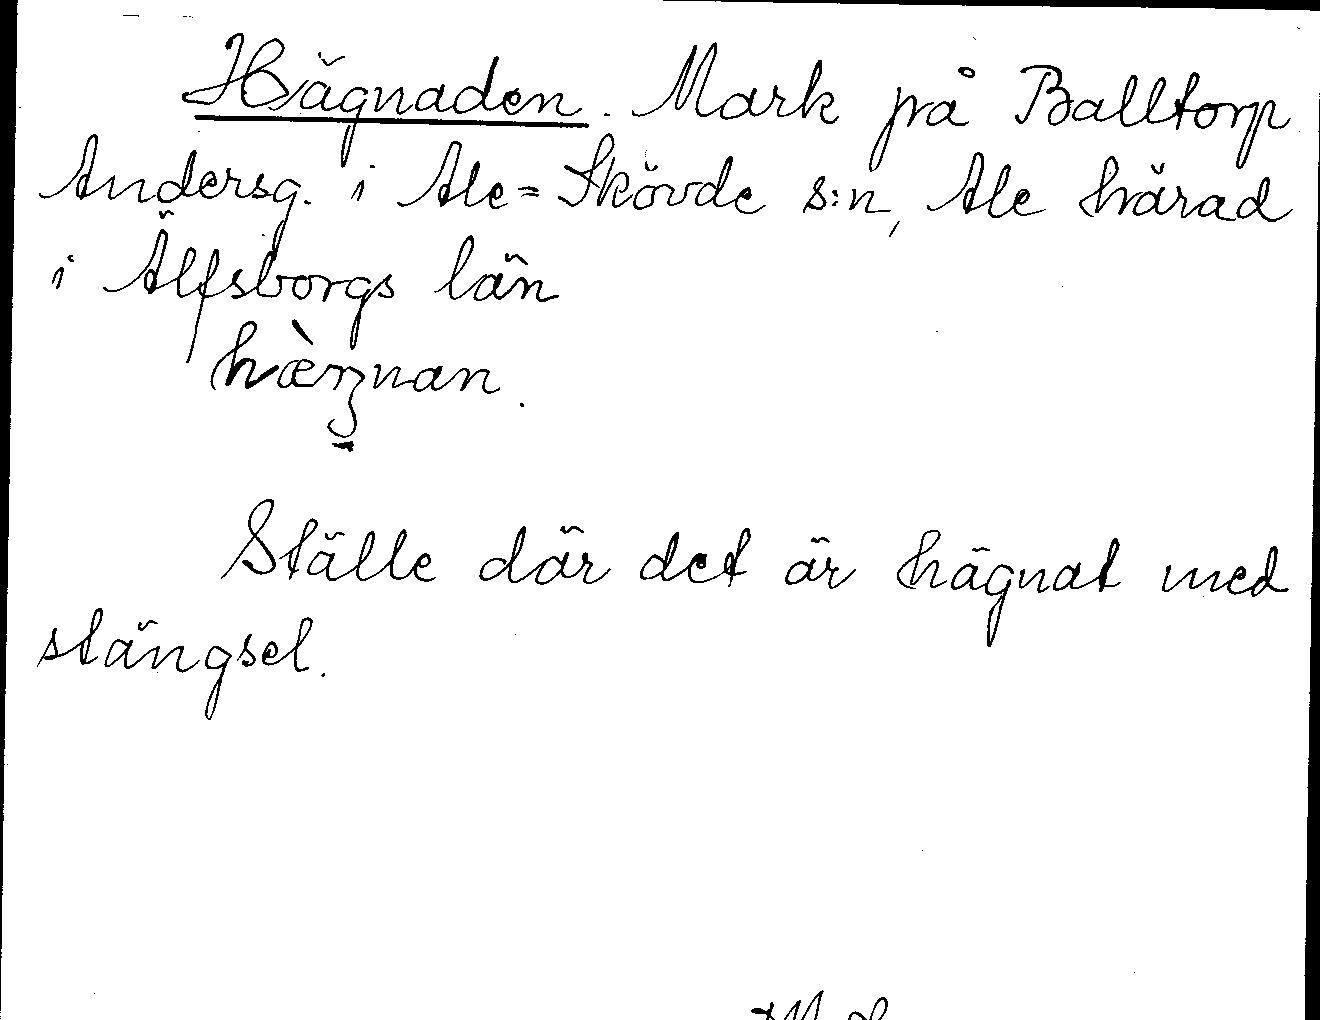 Hägnaden. Mark på Balltorp
Andersg. i Ale=Skövde s:n, Ale härad
i Älfsborgs län
hæ̀ŋnan.
Ställe där det är hägnat med
stängsel.